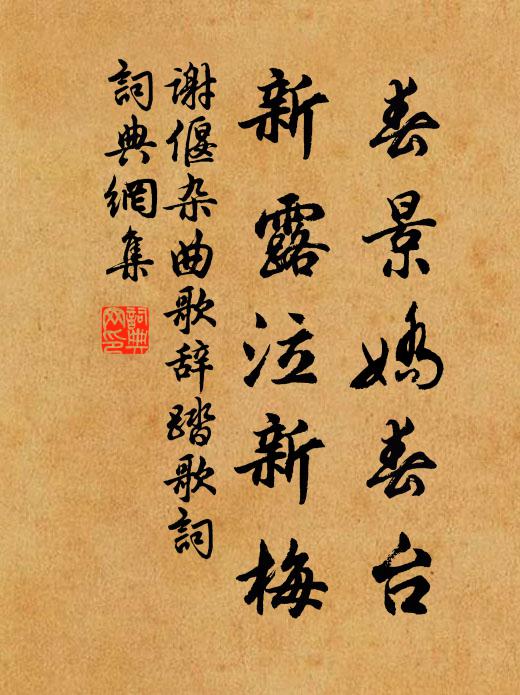 春景嬌春台
新露泣新梅
谢偃杂曲歌辞踏歌詞
詞典網集
詞典網印